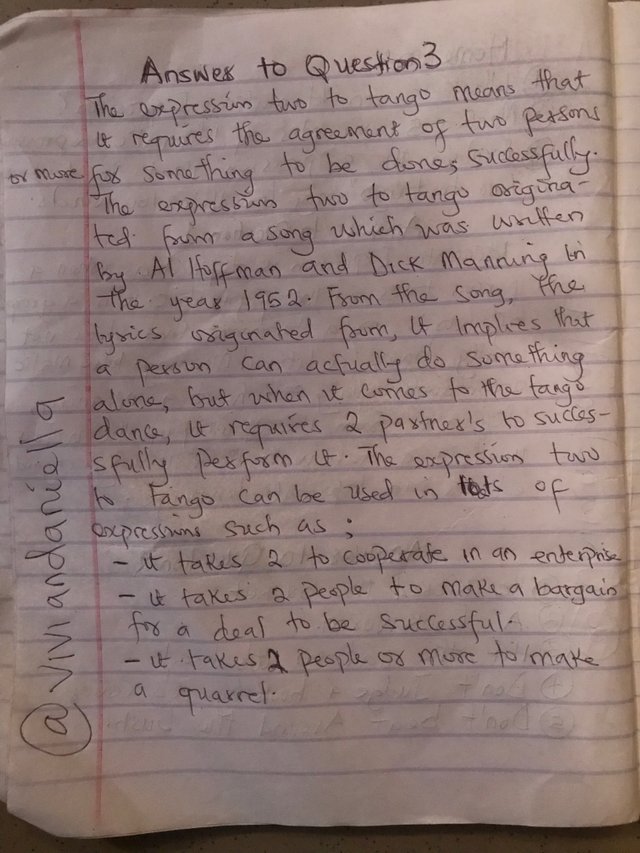 Answer to Question 3
The expression two to tango means that
it requires the agreement of two persons
or more for something to be done, successfully.
The expression two to tango origina-
ted from a song which was written
by Al Hoffman and Dick Manning in
the year 1952. From the song, the
lyrics originated from, it implies that
a person can actually do something
alone, but when it comes to the tango
dance, it requires 2 partner's to succes-
sfully perform it. The expression two
to Tango can be used in lots of
expressions such as;
- it takes 2 to cooperate in an enterprise
- it takes 2 people to make a bargain
for a deal to be successful.
- it takes 2 people or more to make
a quarrel.
@viviandaniella